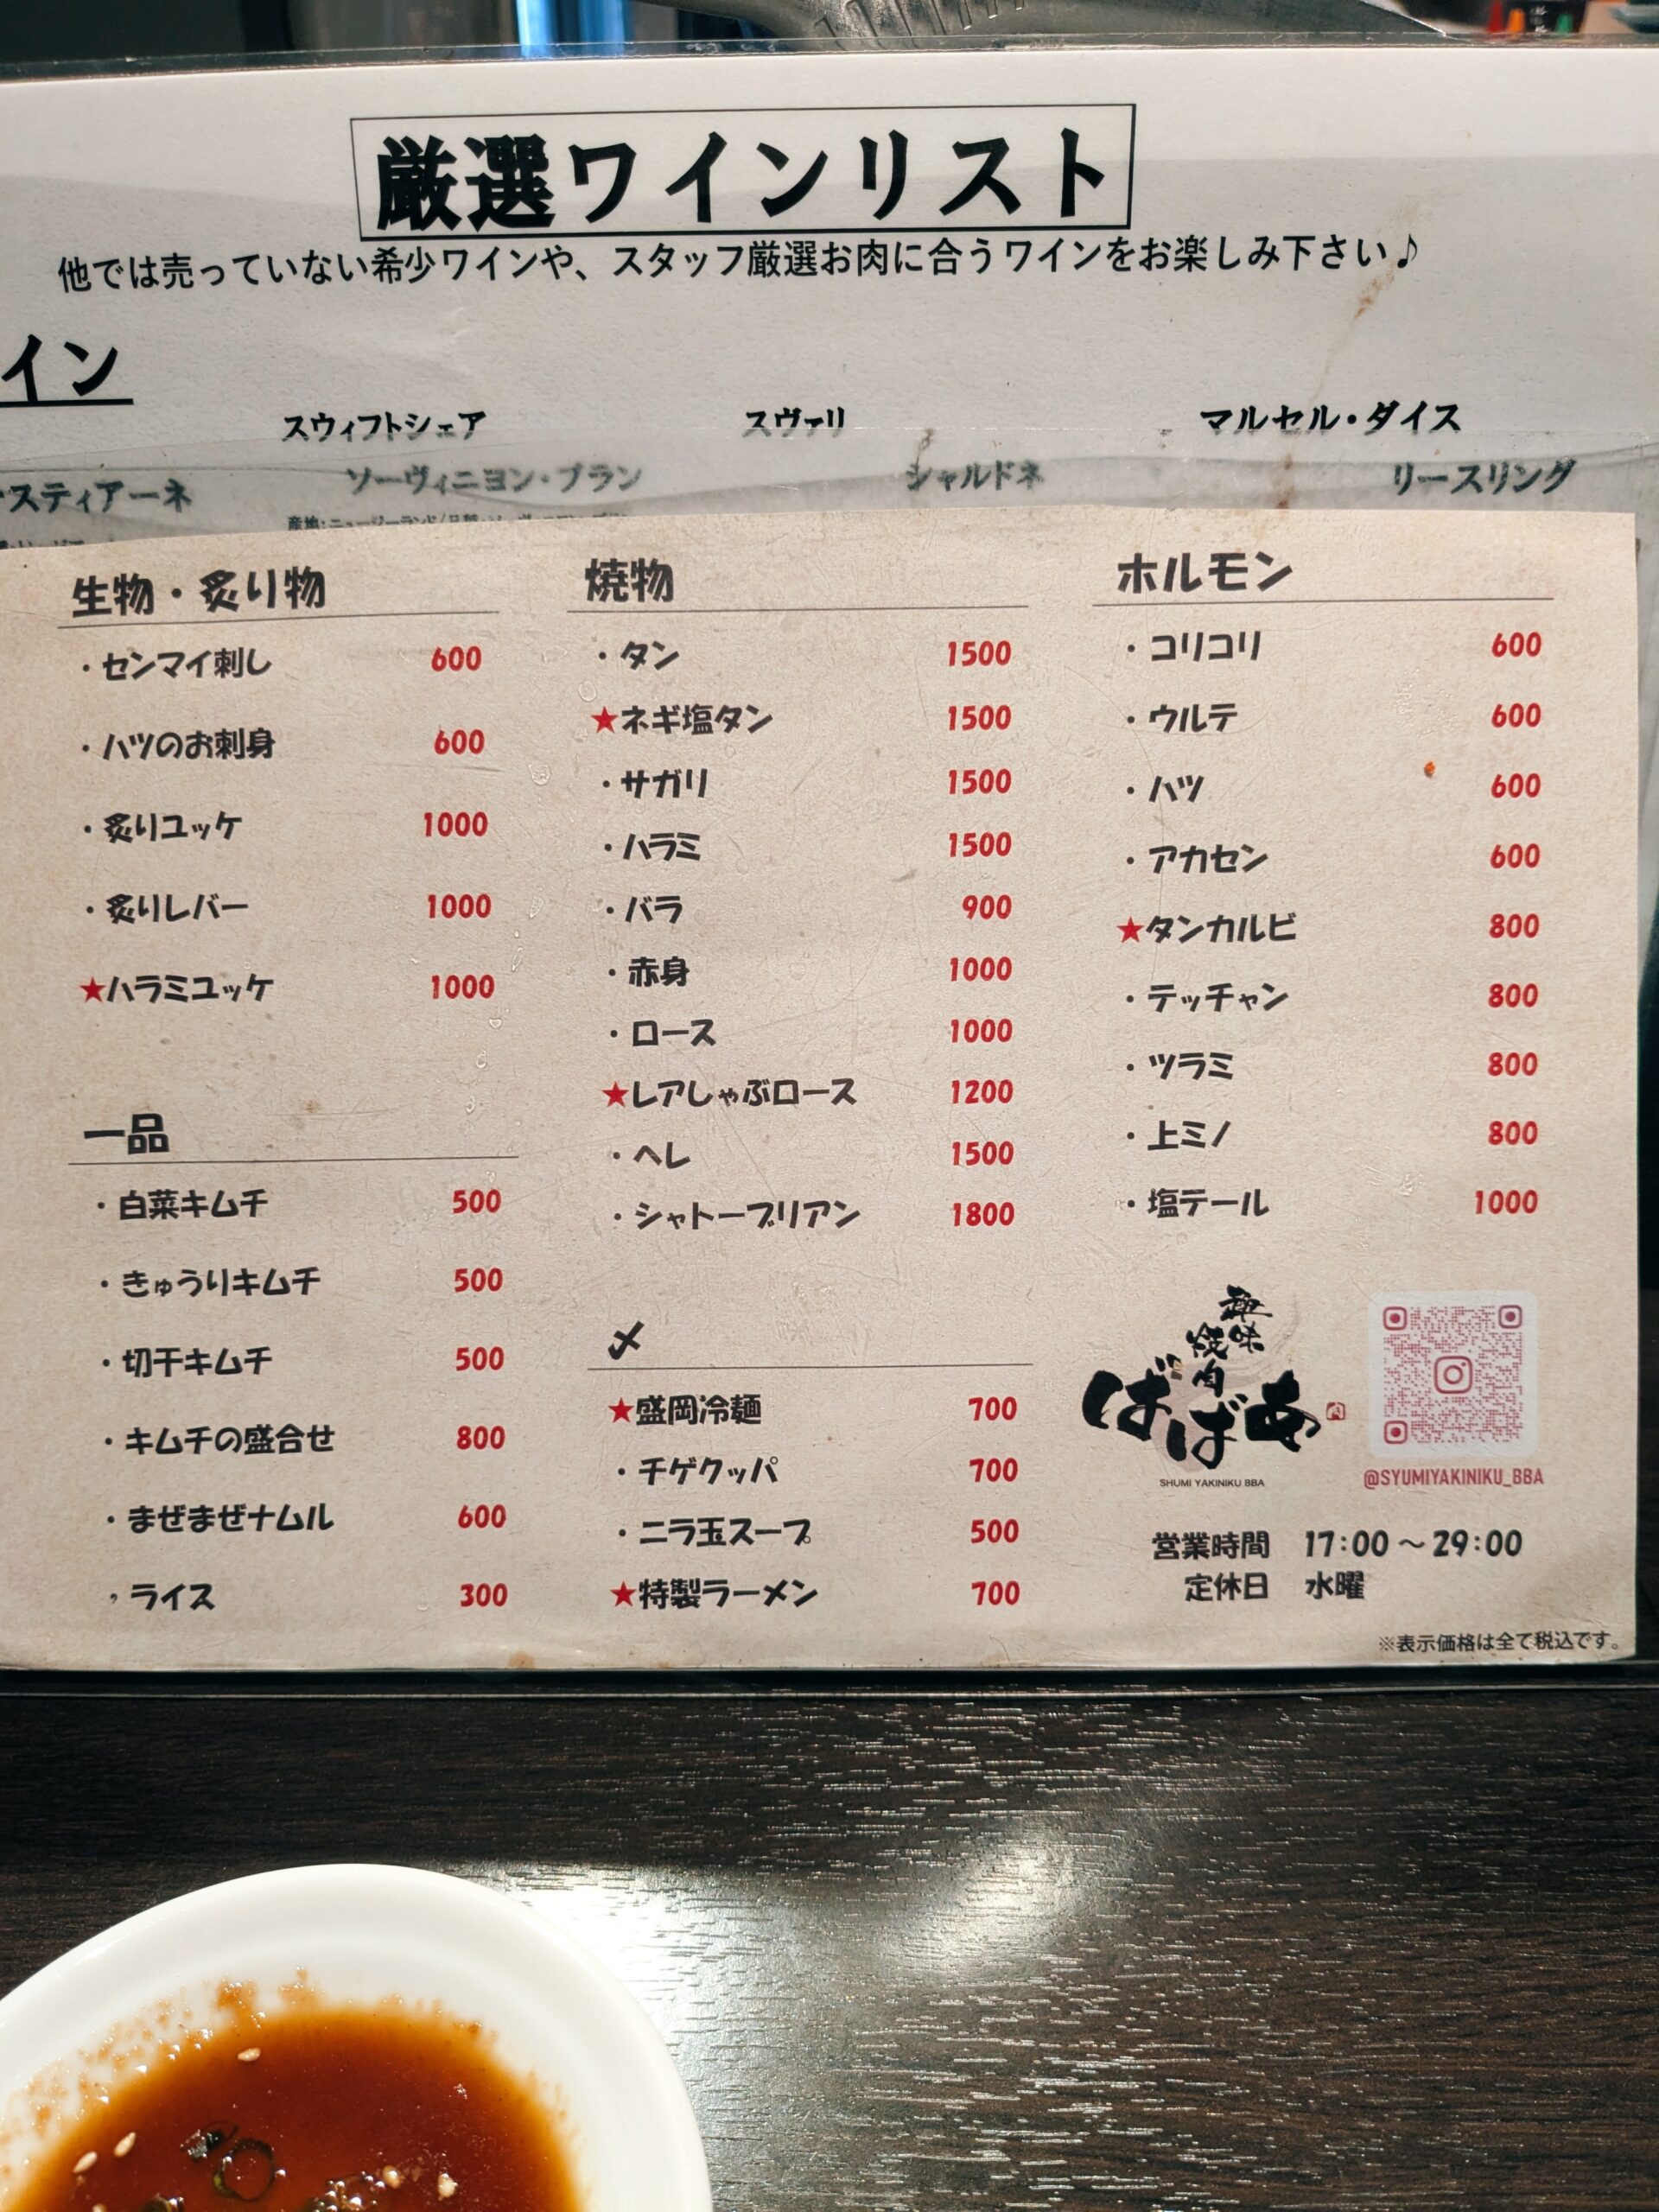 厳選ワインリスト
他では売っていない希少ワインや、スタッフ厳選お肉に合うワインをお楽しみ下さい♪
イン
スウィフトシェア
スヴァリ
マルセル・ダイス
スティアーネ
ソーヴィニヨン・ブラン
シャルドネ
リースリング
生物・炙り物
・センマイ刺し 600
・ハツのお刺身 600
・炙りユッケ 1000
・炙りレバー 1000
★ハラミユッケ 1000
一品
・白菜キムチ 500
・きゅうりキムチ 500
・切干キムチ 500
・キムチの盛合せ 800
・まぜまぜナムル 600
・ライス 300
焼物
・タン 1500
★ネギ塩タン 1500
・サガリ 1500
・ハラミ 1500
・バラ 900
・赤身 1000
・ロース 1000
★レアしゃぶロース 1200
・ヘレ 1500
・シャトーブリアン 1800
〆
★盛岡冷麺 700
・チゲクッパ 700
・ニラ玉スープ 500
★特製ラーメン 700
ホルモン
・コリコリ 600
・ウルテ 600
・ハツ 600
・アカセン 600
★タンカルビ 800
・テッチャン 800
・ツラミ 800
・上ミノ 800
・塩テール 1000
趣味
焼肉
ばばあ
SHUMI YAKINIKU BBA
@SYUMIYAKINIKU_BBA
営業時間 17:00～29:00
定休日 水曜
※表示価格は全て税込です。